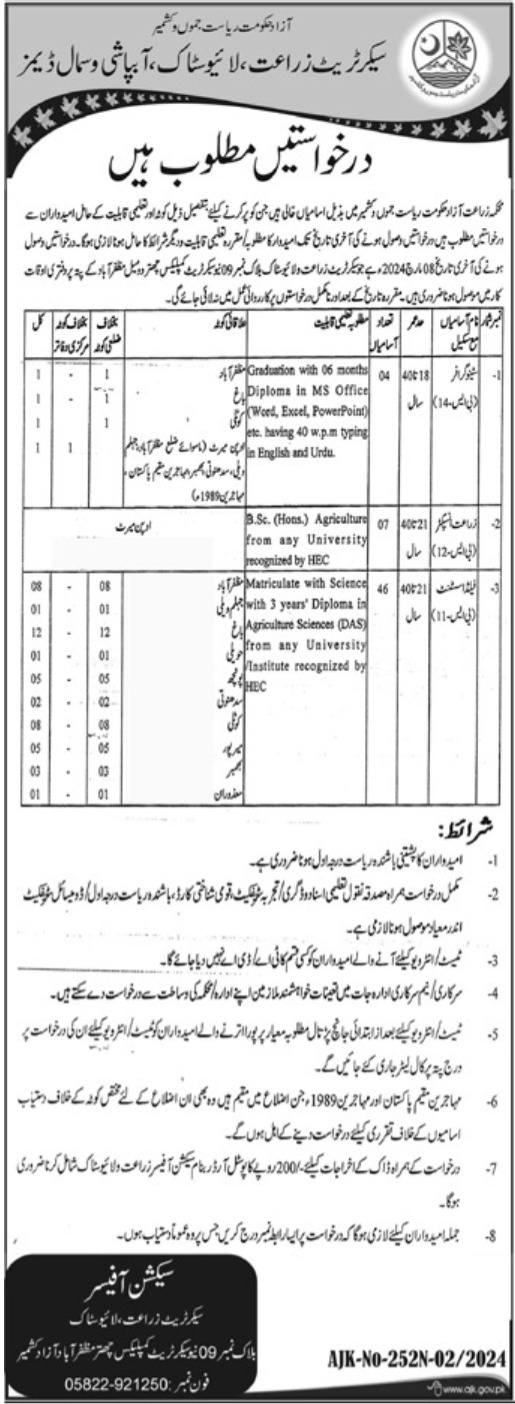 آزاد حکومت ریاست جموں و کشمیر
سیکرٹریٹ زراعت، لائیوسٹاک، آبپاشی وسمال ڈیمز
درخواستیں مطلوب ہیں
محکمہ زراعت آزاد حکومت ریاست جموں وکشمیر میں بذیل اسامیاں خالی ہیں جن کو پُر کرنے کیلئے بتفصیل ذیل کوٹہ اور تعلیمی قابلیت کے حامل امیدواران سے
درخواستیں مطلوب ہیں درخواستیں وصول ہونے کی آخری تاریخ تک امیدوار کا مطلوبہ/مقررہ تعلیمی قابلیت و دیگر شرائط کا حامل ہونا لازمی ہوگا۔ درخواستیں وصول
ہونے کی آخری تاریخ 08 مارچ 2024ء ہے جو سیکرٹریٹ زراعت ولائیوسٹاک بلاک نمبر 09 نیوسیکرٹریٹ کمپلیکس چھتر دومیل مظفرآباد کے پتہ پر دفتری اوقات
کار میں موصول ہونا ضروری ہیں۔ مقررہ تاریخ کے بعد اور نامکمل درخواستوں پر کارروائی عمل میں نہ لائی جائے گی۔
نمبر شمار نام آسامیاں مع سکیل حد عمر تعداد آسامیاں مطلوبہ تعلیمی قابلیت علاقائی کوٹہ بخلاف ضلعی کوٹہ بخلاف کوٹہ مرکزی دفاتر کل
1- سٹینوگرافر (بی ایس-14) 18 تا 40 سال 04
Graduation with 06 months
Diploma in MS Office
(Word, Excel, PowerPoint)
etc. having 40 w.p.m typing
in English and Urdu.
مظفرآباد 1 - 1
باغ 1 - 1
کوٹلی 1 1
اوپن میرٹ (ماسوائے ضلع مظفرآباد، جہلم 1 1
ویلی، سدھنوتی، بھمبر، مہاجرین مقیم پاکستان،
مہاجرین 1989ء)
2- زراعت انسپکٹر (بی ایس-12) 21 تا 40 سال 07
B.Sc. (Hons.) Agriculture
from any University
recognized by HEC
اوپن میرٹ
3- فیلڈ اسسٹنٹ (بی ایس-11) 21 تا 40 سال 46
Matriculate with Science
with 3 years' Diploma in
Agriculture Sciences (DAS)
from any University
/Institute recognized by
HEC
مظفرآباد 08 - 08
جہلم ویلی 01 - 01
باغ 12 - 12
حویلی 01 - 01
پونچھ 05 - 05
سدھنوتی 02 - 02
کوٹلی 08 - 08
میرپور 05 - 05
بھمبر 03 - 03
معذوران 01 - 01
شرائط:
1- امیدواران کا پشتینی باشندہ ریاست درجہ اول ہونا ضروری ہے۔
2- مکمل درخواست ہمراہ مصدقہ نقول تعلیمی اسناد و ڈگری/تجربہ سرٹیفکیٹ، قومی شناختی کارڈ، باشندہ ریاست درجہ اول/ڈومیسائل سرٹیفکیٹ
اندر معیاد موصول ہونا لازمی ہے۔
3- ٹیسٹ/انٹرویو کیلئے آنے والے امیدواران کو کسی قسم کا ٹی اے/ڈی اے نہیں دیا جائے گا۔
4- سرکاری/نیم سرکاری ادارہ جات میں تعینات خواہشمند ملازمین اپنے ادارہ/محکمہ کی وساطت سے درخواست دے سکتے ہیں۔
5- ٹیسٹ/انٹرویو کیلئے بعد از ابتدائی جانچ پڑتال مطلوبہ معیار پر پورا اترنے والے امیدواران کو ٹیسٹ/انٹرویو کیلئے ان کی درخواست پر
درج پتہ پر کال لیٹر جاری کئے جائیں گے۔
6- مہاجرین مقیم پاکستان اور مہاجرین 1989ء جن اضلاع میں مقیم ہیں وہ بھی ان اضلاع کے لئے مختص کوٹہ کے خلاف دستیاب
اسامیوں کے خلاف تقرری کیلئے درخواست دینے کے اہل ہوں گے۔
7- درخواست کے ہمراہ ڈاک کے اخراجات کیلئے -/200 روپے کا پوسٹل آرڈر بنام سیکشن آفیسر زراعت ولائیوسٹاک شامل کرنا ضروری
ہوگا۔
8- جملہ امیدواران کیلئے لازمی ہوگا کہ درخواست پر ایسا رابطہ نمبر درج کریں جس پر وہ عموماً دستیاب ہوں۔
سیکشن آفیسر
سیکرٹریٹ زراعت، لائیوسٹاک
بلاک نمبر 09 نیوسیکرٹریٹ کمپلیکس چھتر مظفرآباد آزاد کشمیر
فون نمبر: 05822-921250
AJK-No-252N-02/2024
www.ajk.gov.pk